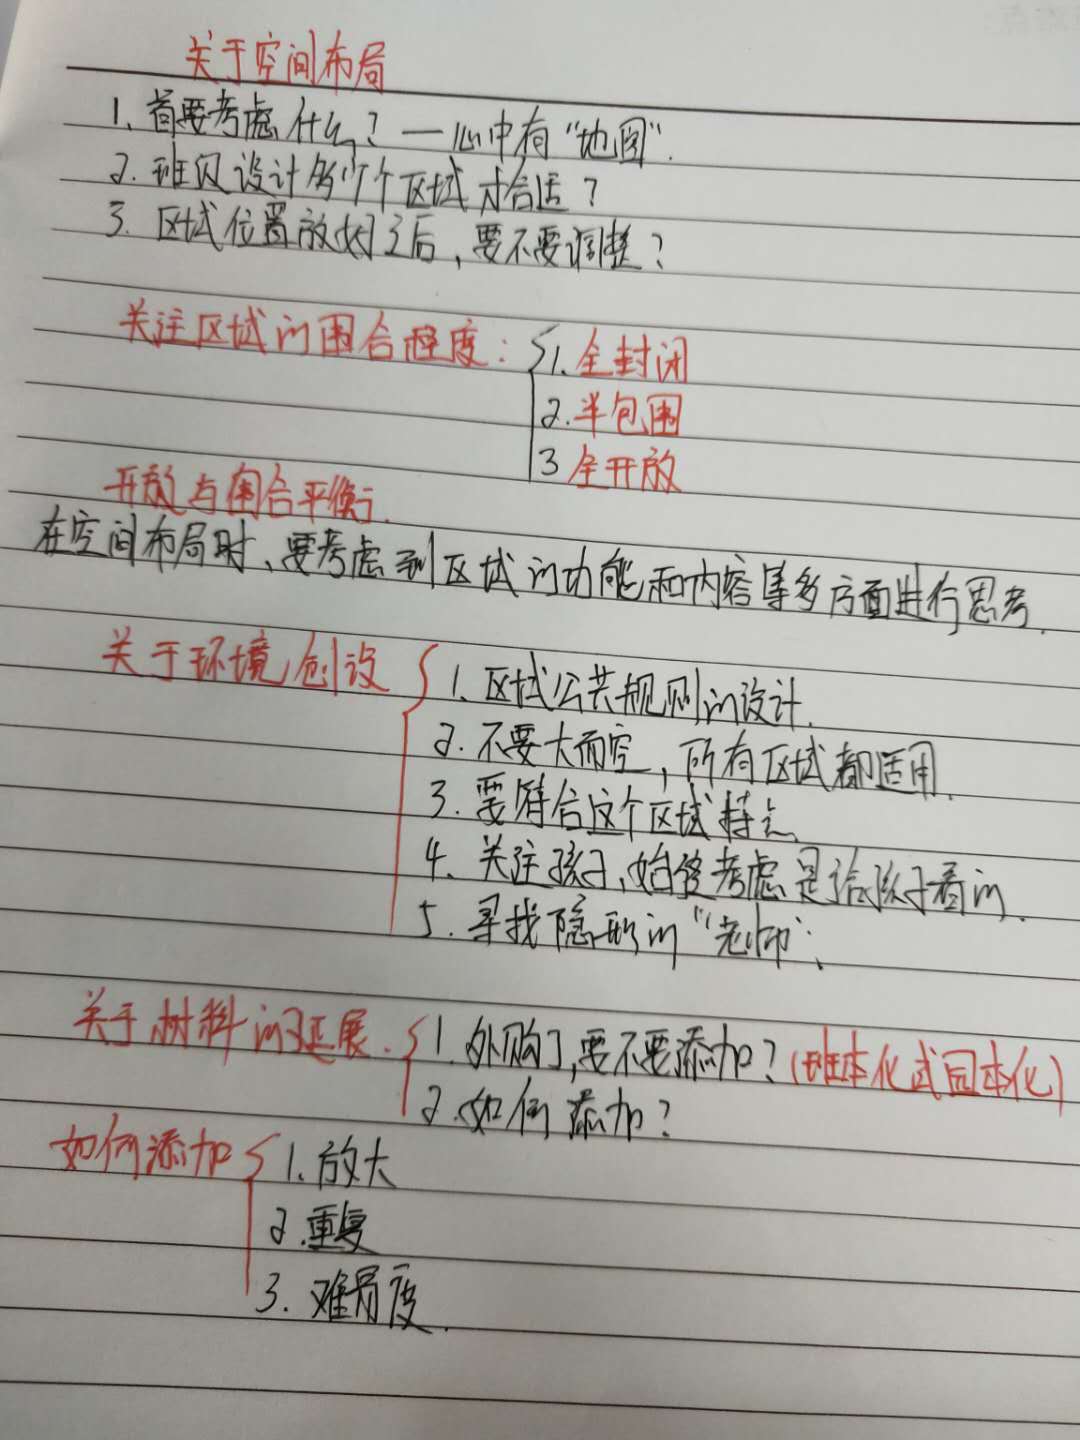 关于空间布局
1、首要考虑什么？—心中有“地图”.
2. 班级设计多少个区域才合适？
3. 区域位置放好之后，要不要调整？
关注区域的围合程度：1. 全封闭
2. 半包围
3 全开放
开放与围合平衡.
在空间布局时、要考虑到区域的功能和内容等多方面进行思考.
关于环境创设 1、区域公共规则的设计.
2. 不要大而空，所有区域都适用.
3. 要符合这个区域特点
4、关注孩子、始终考虑是给孩子看的.
5. 寻找隐形的“老师”、
关于材料的延展. 1. 外购了,要不要添加？(班本化或园本化)
2. 如何添加？
如何添加 1. 放大
2. 重复
3. 难易度.